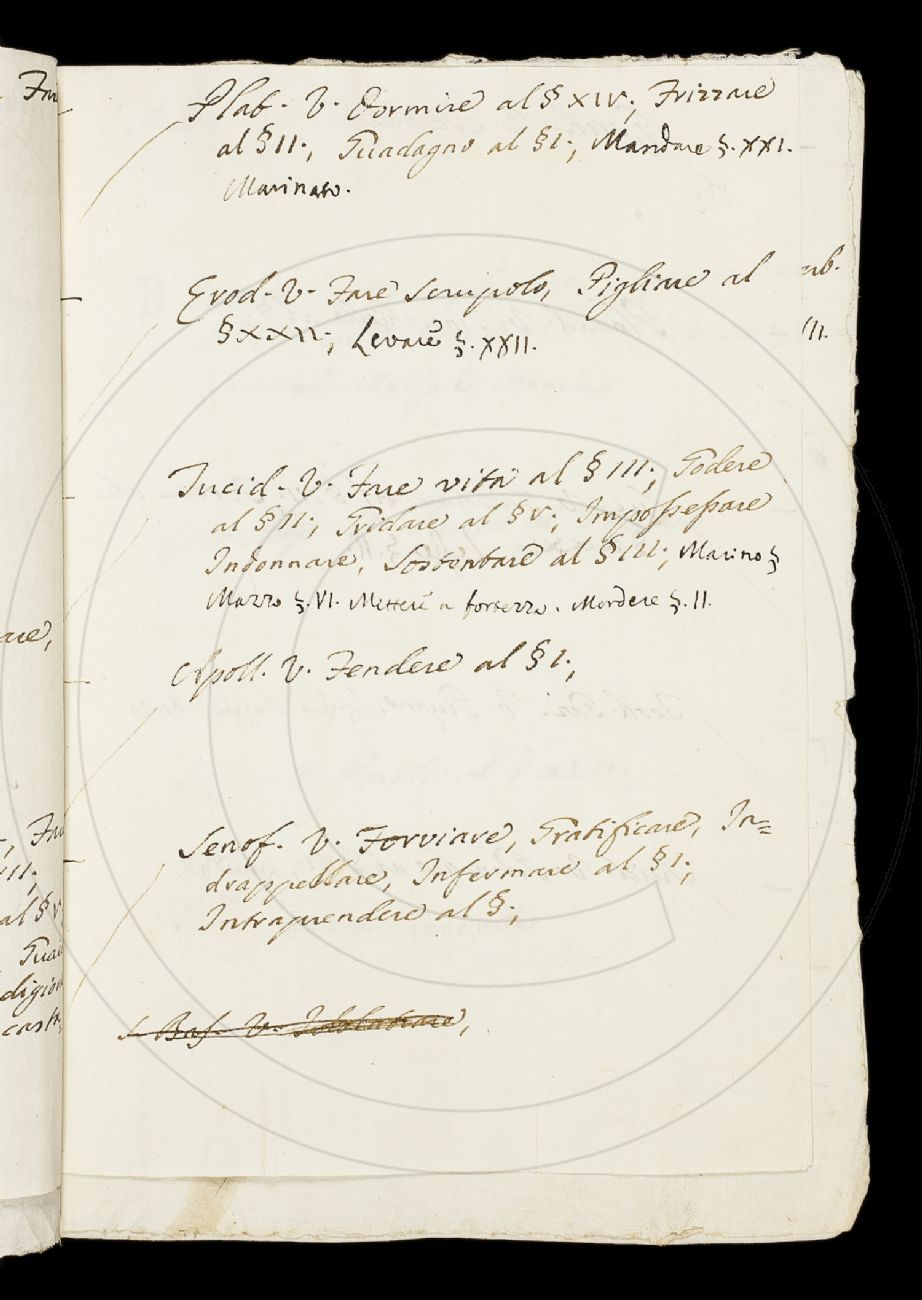 Plat. V. Dormire al § XIV; Frizzare
al § II; Guadagno al § I; Mandare §. XXI.
Marinato.
Erod. V. Fare scrupolo, Pigliare al
§ XXII; Levare §. XXII.
Tucid. V. Fare vita al § III; Godere
al § II; Gridare al § V; Impossessare
Indonnare, Sostentare al § III; Marino §
Mazzo §. VI. Mettere a fortezza. Mordere §. II.
Apoll. V. Fendere al § I;
Senof. V. Forviare, Gratificare, In=
drappellare, Infermare al § I;
Intraprendere al §;
S. Bas. V.